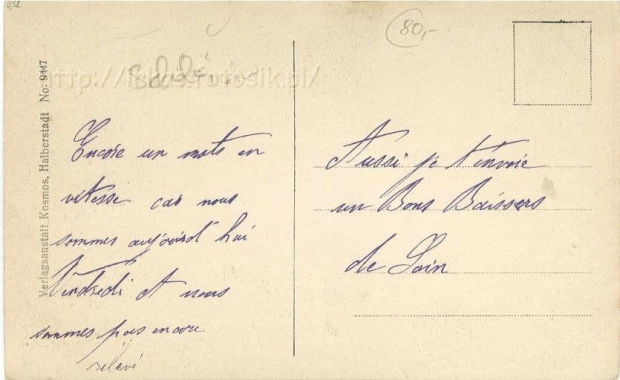 80,-
Verlagsanstalt Kosmos, Halberstadt No: 9117
Encore un mots en
vitesse car nous
sommes aujourd'hui
Vendredi et nous
sommes pas encore
relevé
Aussi je t'envoie
un Bons Baisers
de Loin